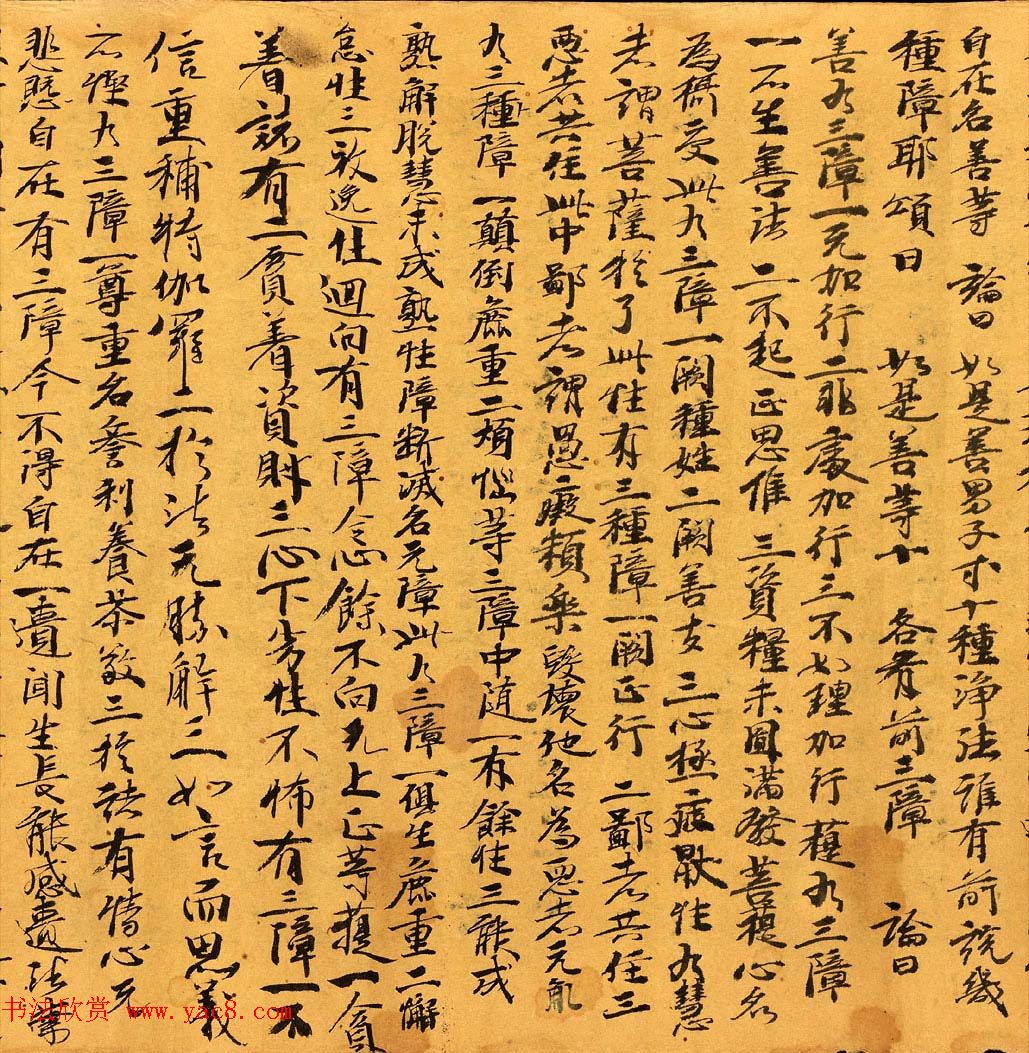 自在名善等　論曰　如是善男子等十種淨法誰有前說幾
種障耶頌曰　如是善等十　各有前三障　論曰
善有三障一无加行二非處加行三不如理加行菩提有三障
一不生善法二不起正思惟三資糧未圓滿發菩提心名
為攝受此有三障一闕種姓二闕善友三心極疲厭性有慧
者謂菩薩於了此性有三種障一闕正行二鄙者共住三
惡者共住此中鄙者謂愚癡類樂毀壞他名為惡者无亂
有三種障一顛倒麁重二煩惱等三障中隨一有餘性三能成
熟解脫慧未成熟性障斷滅名无障此有三障一俱生麁重二懈
怠性三放逸性迴向有三障令心餘不向无上正等菩提一貪
著諸有二貪著資財三心下劣性不怖有三障一不
信重補特伽羅二於法无勝解三如言而思義
不慳有三障一尊重名譽利養恭敬三於諸有情心无
悲愍自在有三障令不得自在一匱聞生長能感匱法業
书法欣赏 www.yac8.com